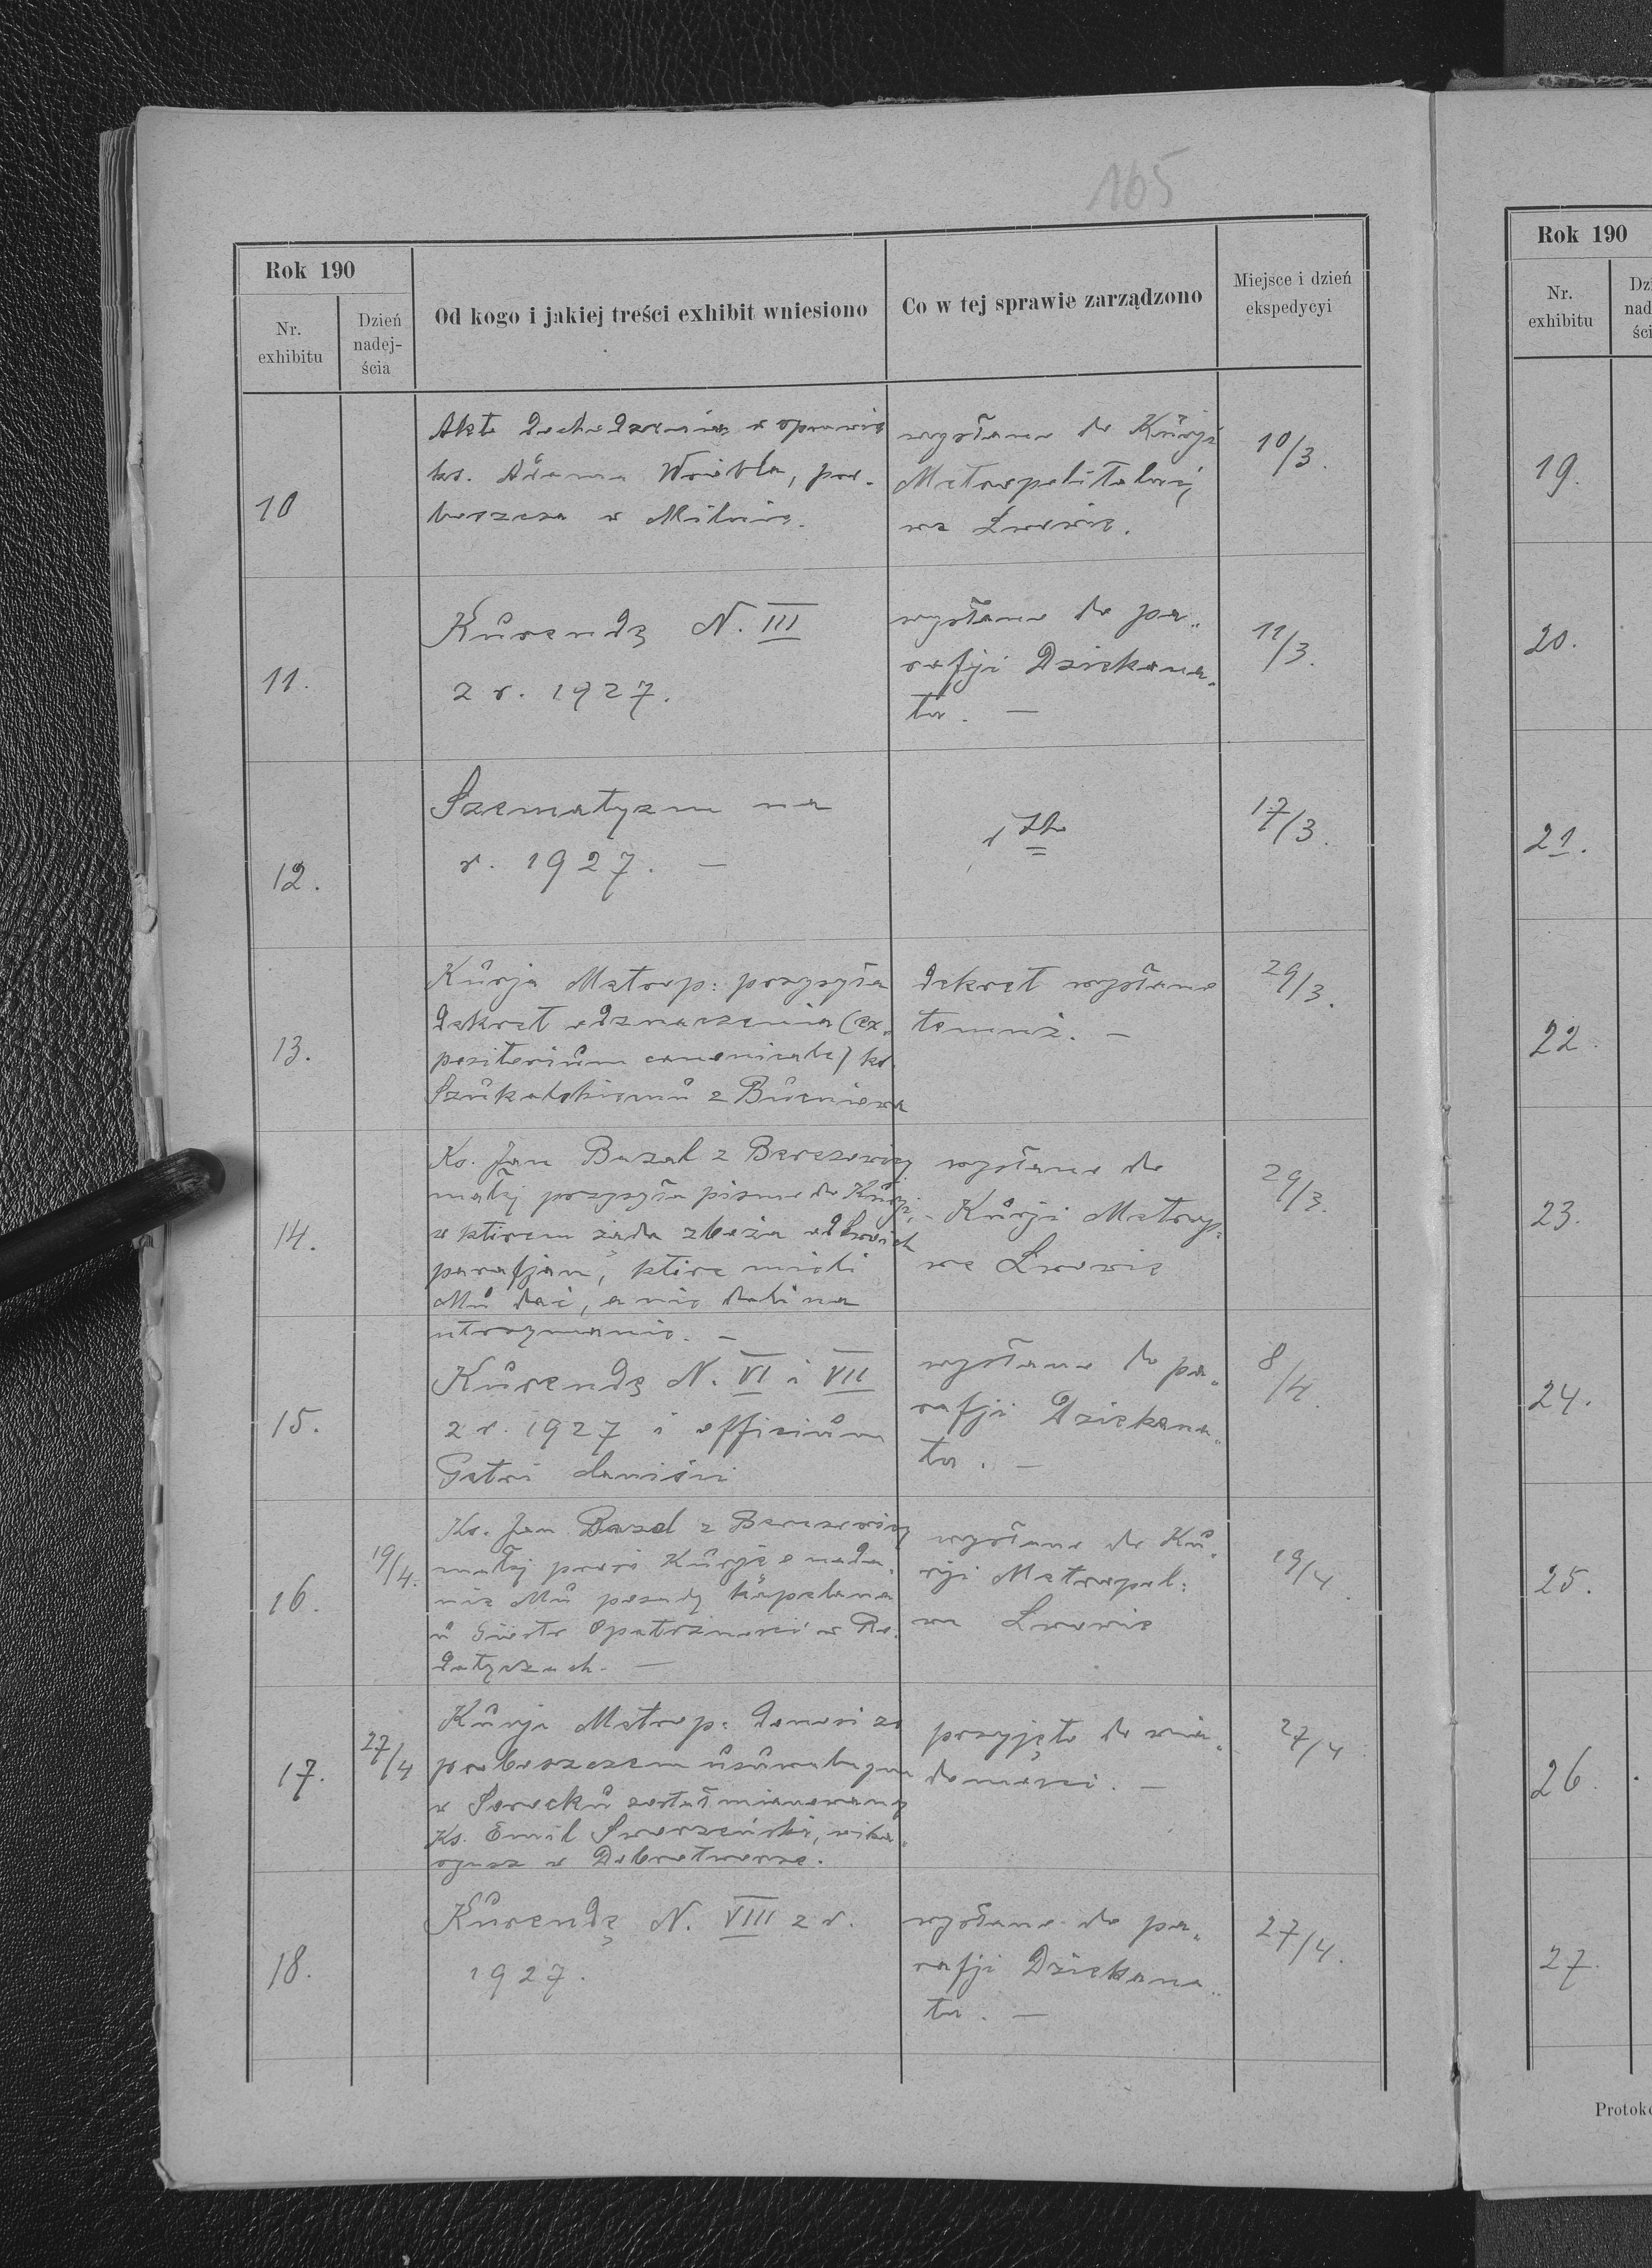 165
Rok 190
Nr. exhibitu
Dzień nadej-ścia
Od kogo i jakiej treści exhibit wniesiono
Co w tej sprawie zarządzono
Miejsce i dzień ekspedycyi
10
Akta dochodzenia w sprawie
ks. Adama Wróbla, pro-
boszcza w Milnie.
wysłano do Kurji
Metropolitalnej
we Lwowie.
10/3.
11.
Kurendę N. III
z r. 1927.
wysłano do pa„
rafji Dziekana„
tu. —
11/3.
12.
Szematyzm na
r. 1927. —
17/3.
13.
Kurja Metrop: przysyła
dekret odznaczenia (ex„
positorium canonicale) ks.
Szukalskiemu z Bucniowa
dekret wysłano
temuż. —
29/3.
14.
Ks. Jan Bazal z Berezowicy
małej przysyła pismo do Kurji,
w którem żąda zboża od swoich
parafjan, które mieli
Mu dać, a nie dali na
utrzymanie. —
wysłano do
Kurji Metrop:
we Lwowie
29/3.
15.
Kurendę N. VI i VII
z r. 1927 i officium
Petri Canisii
wysłano do pa„
rafji Dziekana„
tu. —
8/4.
16.
19/4.
Ks. Jan Bazal z Berezowicy
małej prosi Kurję o nada„
nie Mu posady kapelana
u Sióstr Opatrzności w Ro„
datyczach. —
wysłano do Ku„
rji Metropol:
we Lwowie
19/4.
17.
27/4
Kurja Metrop: donosi że
proboszczem usuwalnym
w Sorocku został mianowany
Ks. Emil Sworzeński, wika„
ryusz w Dobrotworze.
przyjęto do wia„
domości. —
27/4.
18.
Kurendę N. VIII z r.
1927.
wysłano do pa„
rafji Dziekana„
tu. —
27/4.
Rok 190
Nr. exhibitu
19.
20.
21.
22.
23.
24.
25.
26.
27.